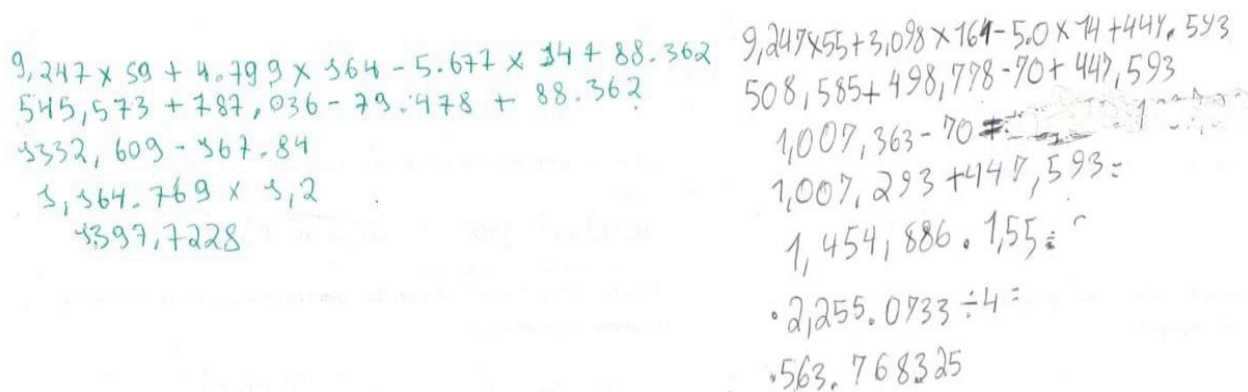 9,247 x 59 + 4.799 x 164 - 5.677 x 14 + 88.362
545,573 + 787,036 - 79.478 + 88.362
1332,609 - 167.84
1,164.769 x 1,2
1397,7228
9,247x55+3,098x164-5.0x14+447.593
508,585+498,778-70+447,593
1,007,363-70
1,007,293+447,593=
1,454,886.1,55=
.2,255.0733÷4=
.563.768325